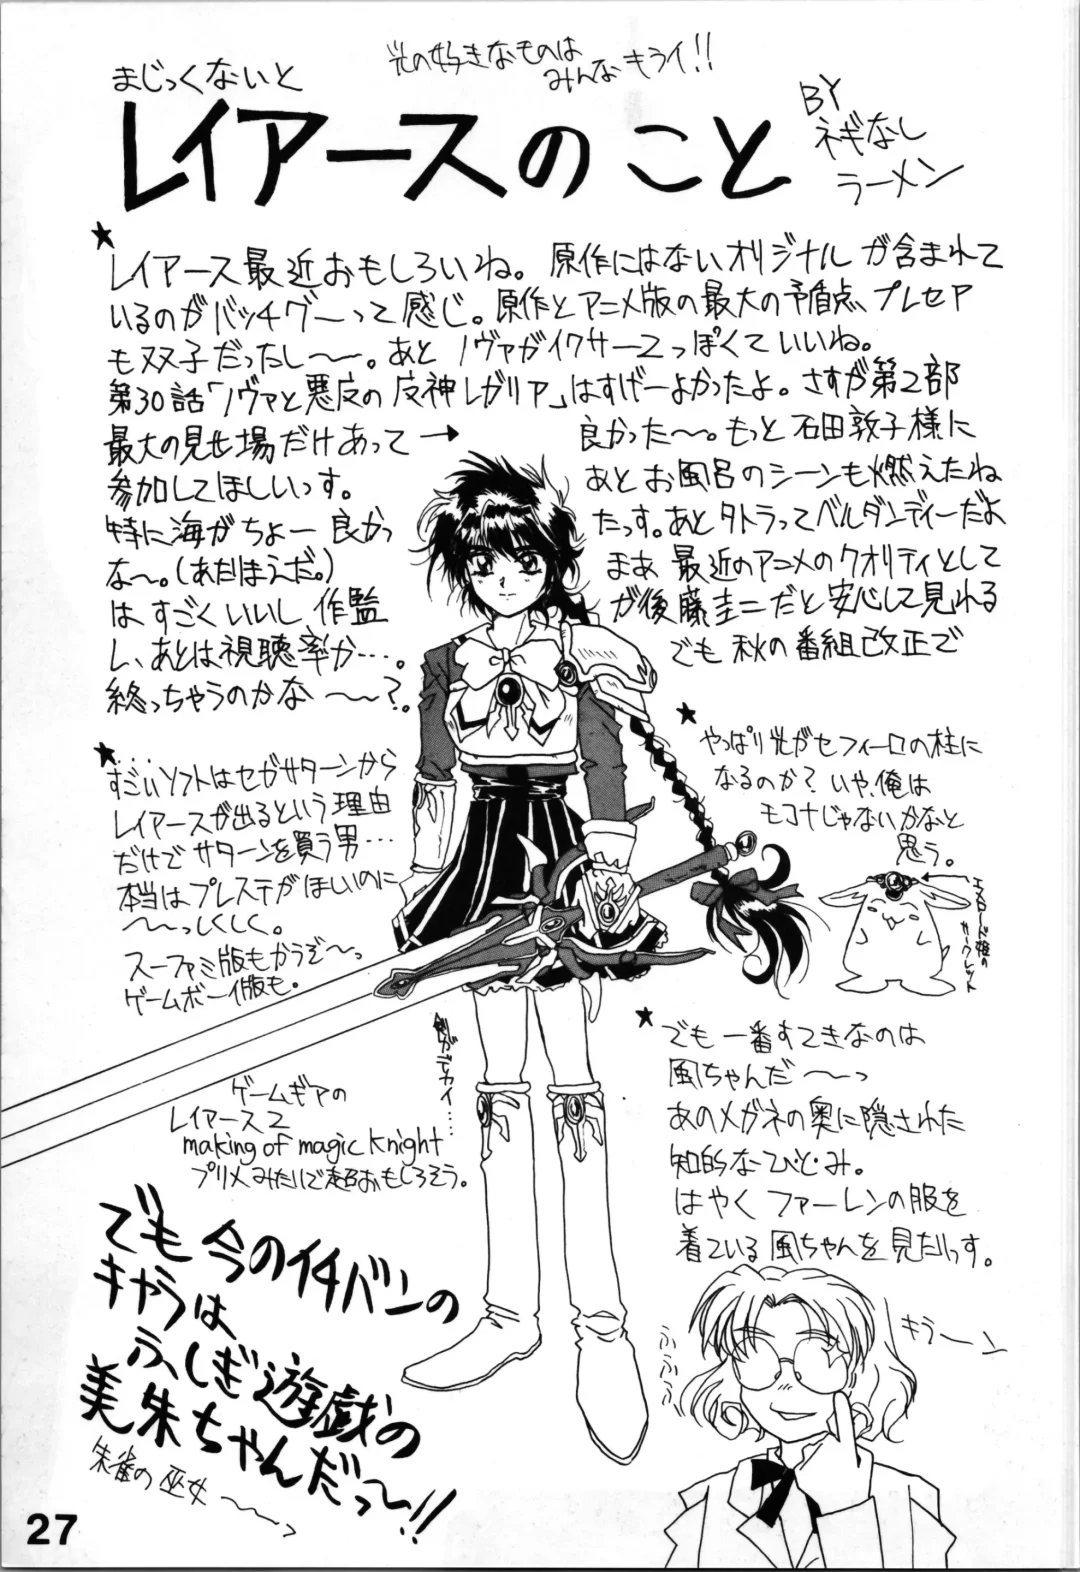 光の好きなものは
みんなキライ!!
まじっくないと
レイアースのこと
BY
ネギなし
ラーメン
★
レイアース最近おもしろいね。原作にはないオリジナルが含まれて
いるのがバッチグーって感じ。原作とアニメ版の最大の矛盾点、プレセア
も双子だったし〜〜。あとノヴァがイクサー2っぽくていいね。
第30話「ノヴァと悪夜の魔神レガリア」はすげーよかったよ。さすが第2部
最大の見せ場だけあって→
良かった〜。もっと石田敦子様に
参加してほしいっす。
あとお風呂のシーンも燃えたね
特に海がちょー良かっ
たっす。あとタトラってベルダンディーだよ
な〜。(あたりまえだ。)
まあ最近のアニメのクオリティとして
は、すごくいいし、作監
が後藤圭二だと安心して見れる
し、あとは視聴率か…。
でも秋の番組改正で
終っちゃうのかな〜〜?
★
すごいソフトはセガサターンから
レイアースが出るという理由
だけでサターンを買う男…
本当はプレステがほしいのに
〜〜っしくしく。
スーファミ版もかうぞ〜っ
ゲームボーイ版も。
★
やっぱり光がセフィーロの柱に
なるのか?いや、俺は
モコナじゃないかなと
思う。
エメロード姫の
サークレット
剣がデカイ…
ゲームギアの
レイアース2
making of magic knight
プリメみたいで超おもしろそう。
★
でも一番すてきなのは
風ちゃんだ〜〜っ
あのメガネの奥に隠された
知的なひとみ。
はやくファーレンの服を
着ている風ちゃんを見たいっす。
でも今のイチバンの
キャラは
ふしぎ遊戯の
美朱ちゃんだっ〜!!
朱雀の巫女〜〜っ
ふふふ
キラーン
27